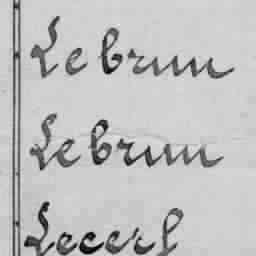 Lebrun
Lebrun
Lecerf